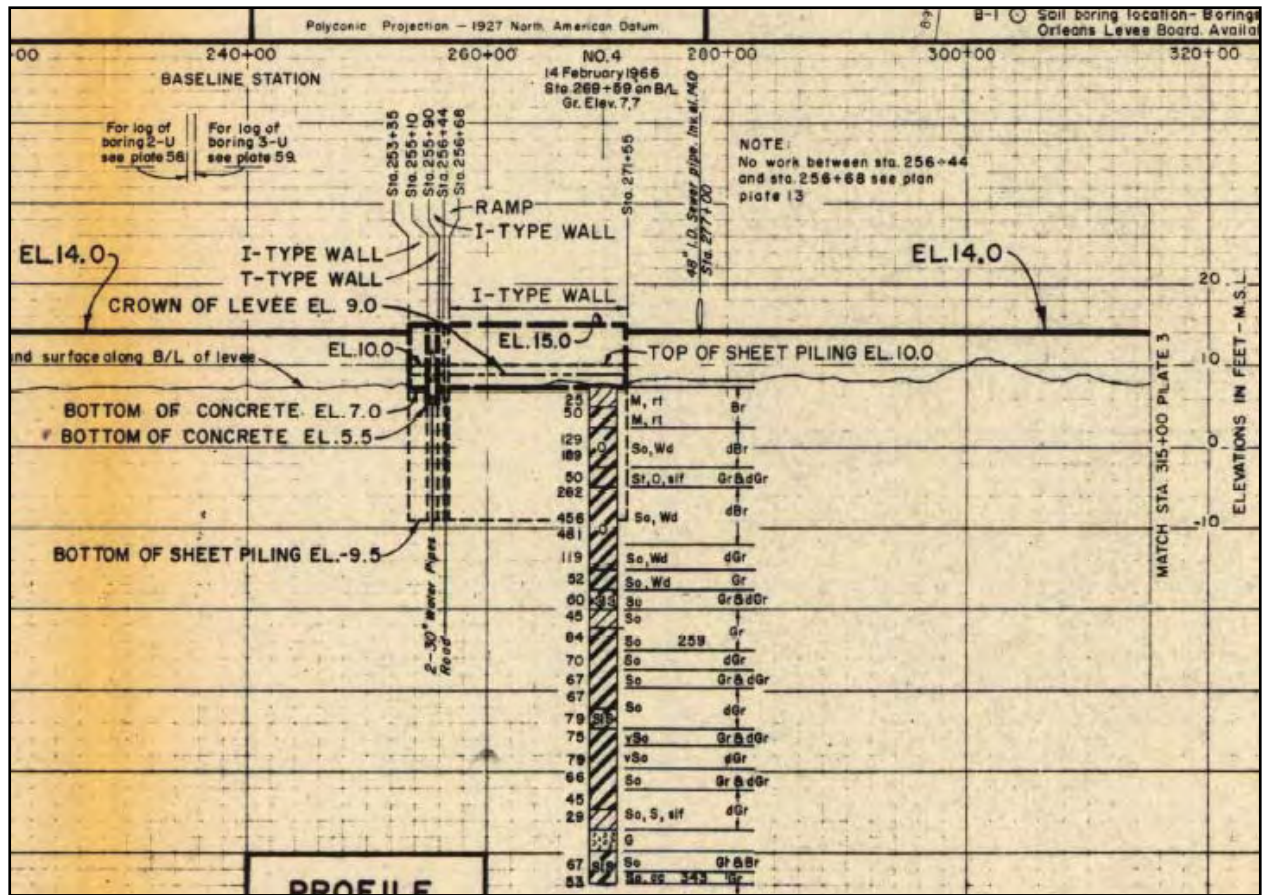 Polyconic Projection — 1927 North American Datum
B-1 Soil boring location- Borings
Orleans Levee Board. Availa
00 240+00 260+00 280+00 300+00 320+00
BASELINE STATION
NO.4
14 February 1966
Sta. 269+59 on B/L
Gr. Elev. 7.7
For log of
boring 2-U
see plate 58
For log of
boring 3-U
see plate 59.
Sta. 253+35
Sta. 255+10
Sta. 255+90
Sta. 256+44
Sta. 256+68
Sta. 271+55
48" I.D. Sewer pipe. Inv. el.
Sta. 277+00
NOTE:
No work between sta. 256+44
and sta. 256+68 see plan
plate 13
RAMP
I-TYPE WALL
I-TYPE WALL
T-TYPE WALL
I-TYPE WALL
EL.14.0
EL.14.0
CROWN OF LEVEE EL. 9.0
EL.15.0
EL.10.0
TOP OF SHEET PILING EL.10.0
nd surface along B/L of levee
BOTTOM OF CONCRETE EL.7.0
BOTTOM OF CONCRETE EL.5.5
BOTTOM OF SHEET PILING EL.-9.5
2-30" Water Pipes
Road
20
10
0
-10
ELEVATIONS IN FEET - M.S.L.
MATCH STA. 315+00 PLATE 3
25 M, rt Br
50 M, rt
129
189 So, Wd dBr
50 St, O, slf Gr & dGr
262
456 So, Wd dBr
481
119 So, Wd dGr
52 So, Wd Gr
60 SIS So Gr & dGr
45 So
84 So 259 Gr
70 So dGr
67 So Gr & dGr
67
79 SIS So dGr
75 vSo Gr & dGr
79 vSo dGr
66 So Gr & dGr
45
29 So, S, slf dGr
G
67 SIS So Gr & Br
53 So, cc 343 Gr
PROFILE